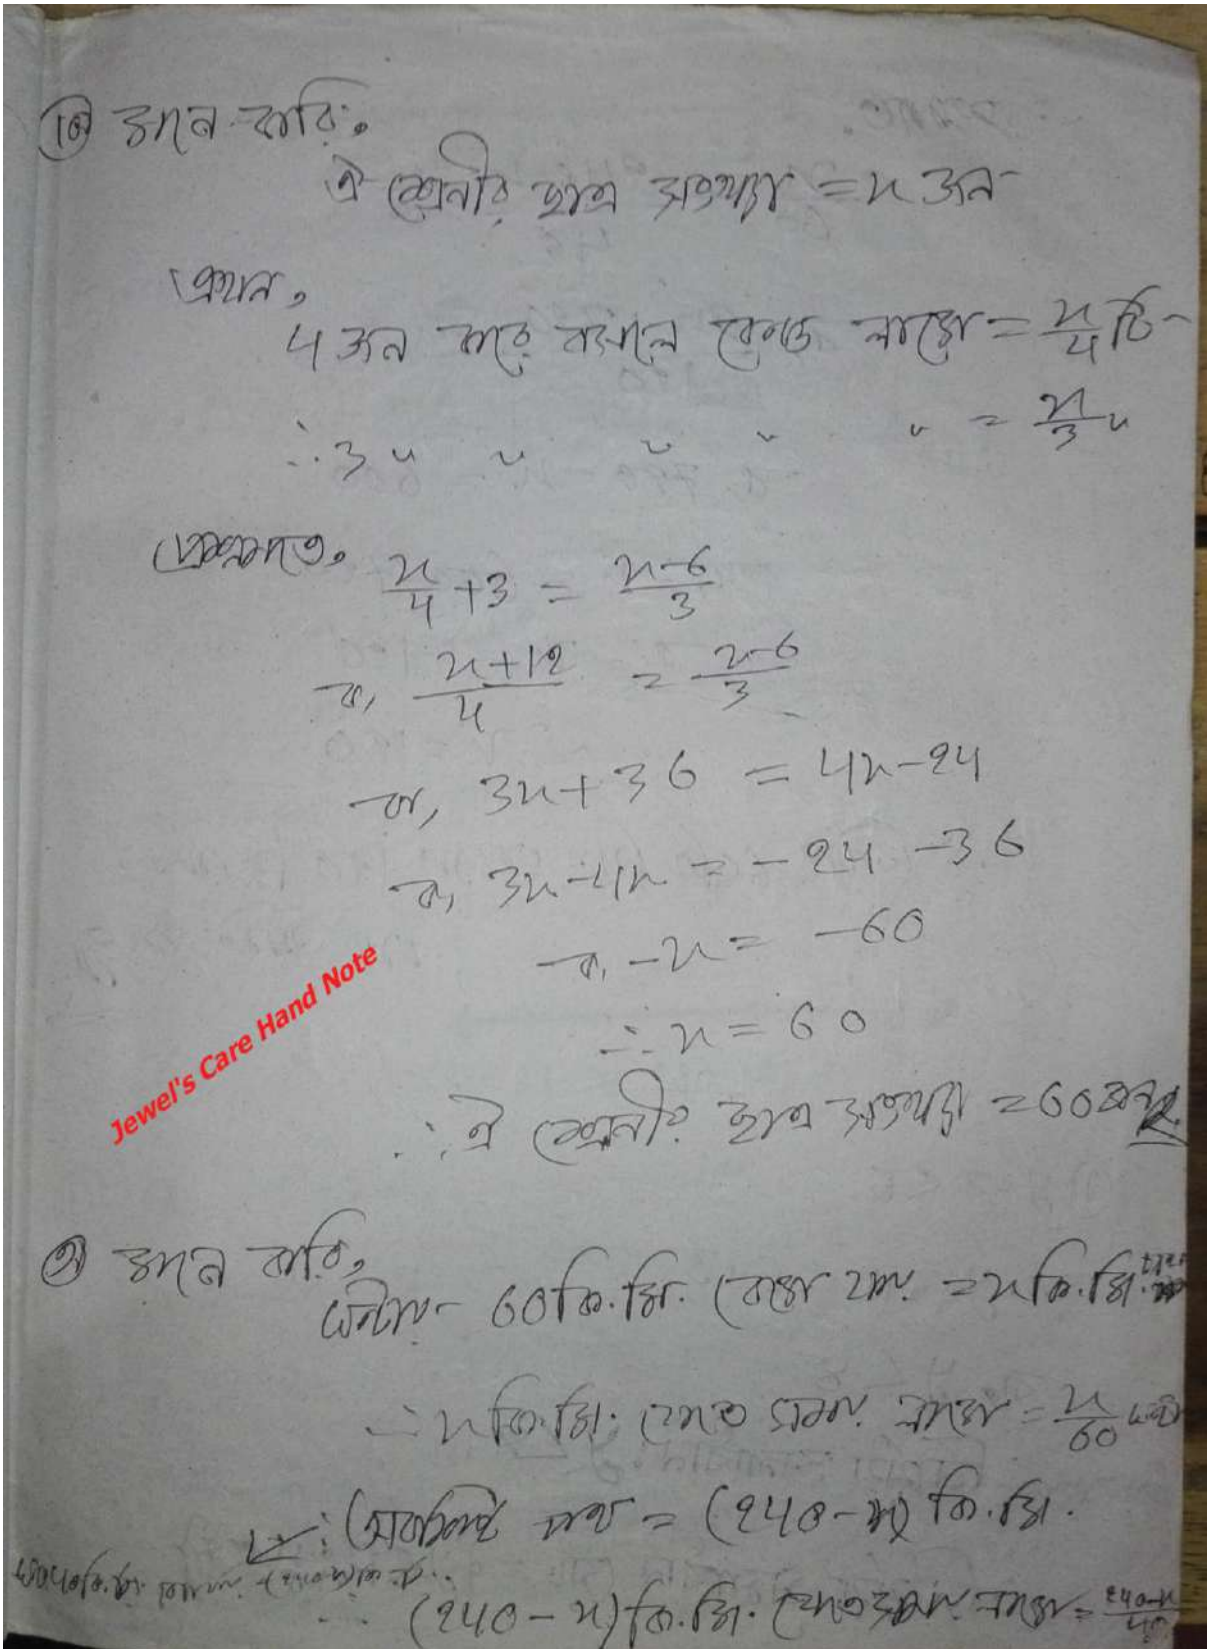 ১০ মনে করি,
ঐ শ্রেনীর ছাত্র সংখ্যা = x জন
এখন,
4 জন করে বসালে বেঞ্চ লাগে = x/4 টি
∴ 3 " " " " " = x/3 "
প্রশ্নমতে,
x/4 + 3 = (x-6)/3
বা, (x+12)/4 = (x-6)/3
বা, 3x + 36 = 4x - 24
বা, 3x - 4x = -24 - 36
বা, -x = -60
∴ x = 60
Jewel's Care Hand Note
∴ ঐ শ্রেনীর ছাত্র সংখ্যা = 60 জন
মনে করি,
ঘন্টায় 60 কি.মি. বেগে যায় = x কি.মি.
∴ x কি.মি. যেতে সময় লাগে = x/60 ঘন্টা
∴ অবশিষ্ট পথ = (240 - x) কি.মি.
∴ (240 - x) কি.মি. যেতে সময় লাগে = (240-x)/40